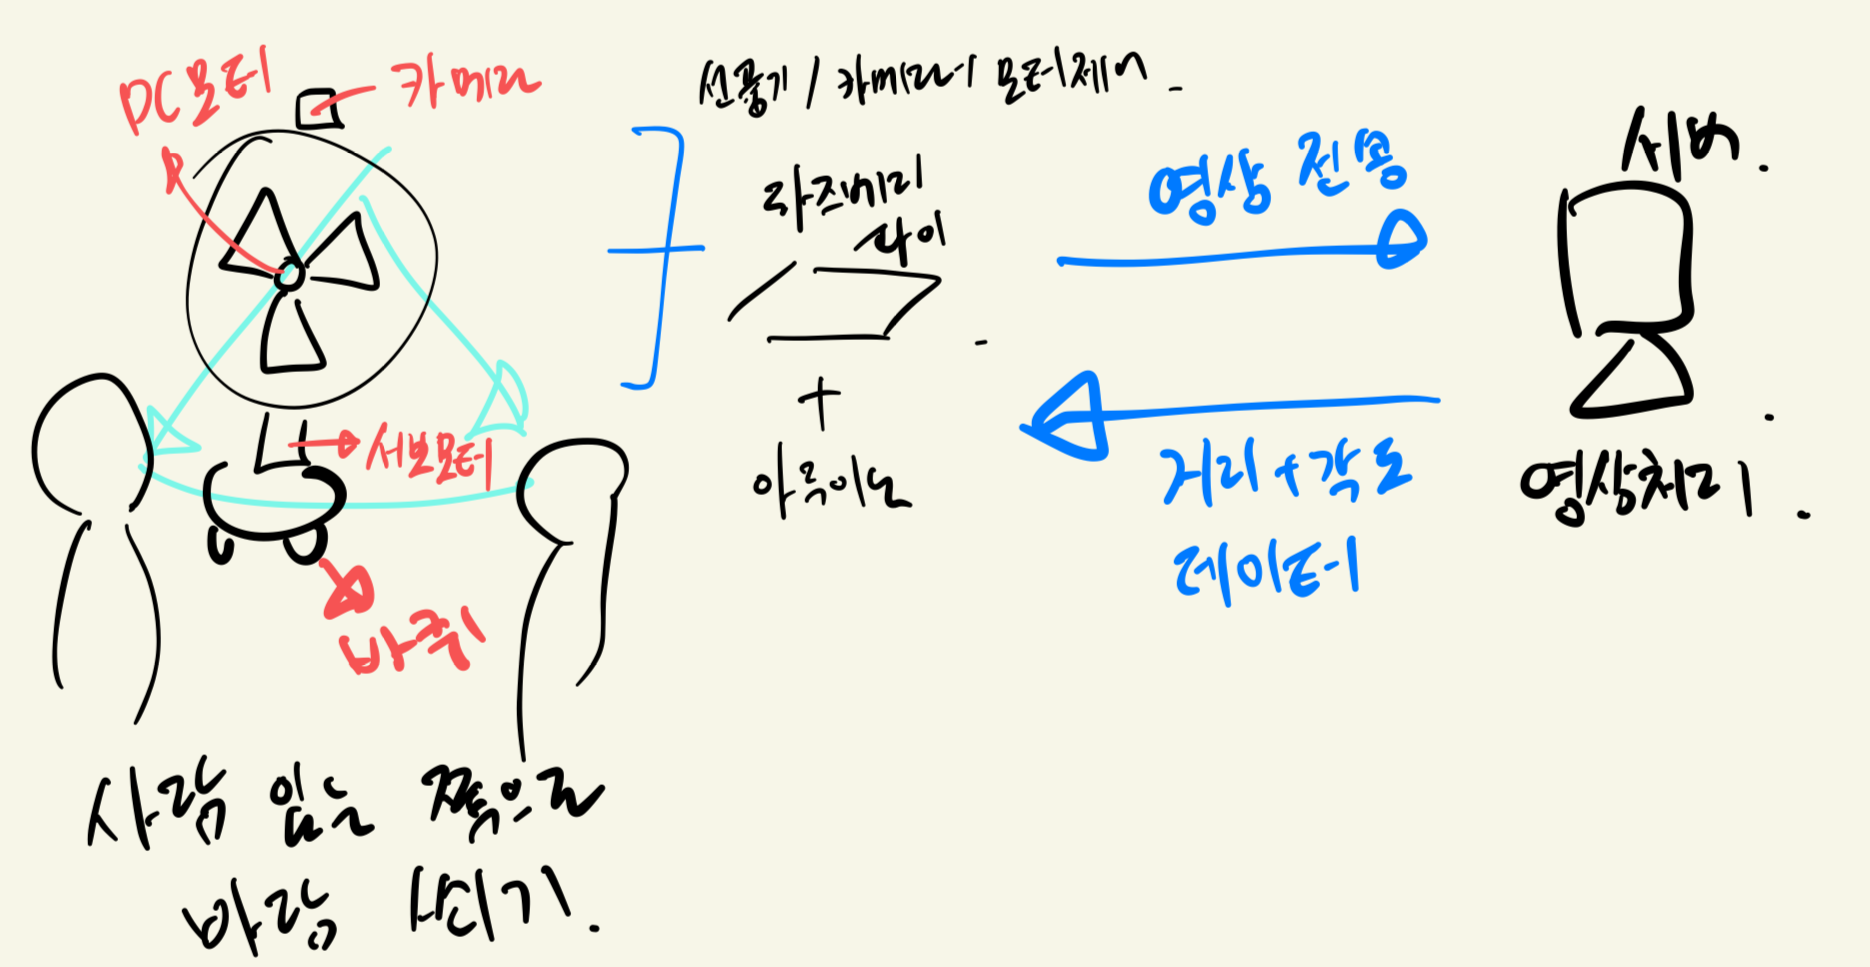 DC모터
카메라
서보모터
바퀴
사람 있는 쪽으로
바람 쐬기.
선풍기 / 카메라 모터제어.
라즈베리
파이
+
아두이노
영상 전송
거리+각도
데이터
서버.
영상처리.